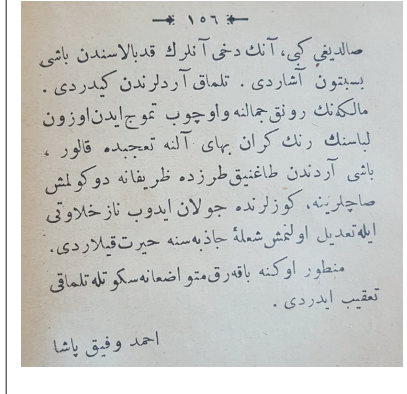 ١٥٦
صالديغى كبى، آنك دخى آنلرك قدبالاسندن باشى
بسبتون آشاردى . تلماق آردلرندن كيدردى .
مالكه‌نك رونق جمالنه واوچوب تموج ايدن اوزون
لباسنك رنك كران بهاى آلنه تعجبده قالور ،
باشى آردندن طاغنيق طرزده ظريفانه دوكولمش
صاچلرينه، كوزلرنده جولان ايدوب ناز خلاوتى
ايله تعديل اولنمش شعلهٔ جاذبه‌سنه حيرت قيلاردى.
منطور اوكنه باقه‌رق متواضعانه سكوتله تلماقى
تعقيب ايدردى .
احمد وفيق پاشا